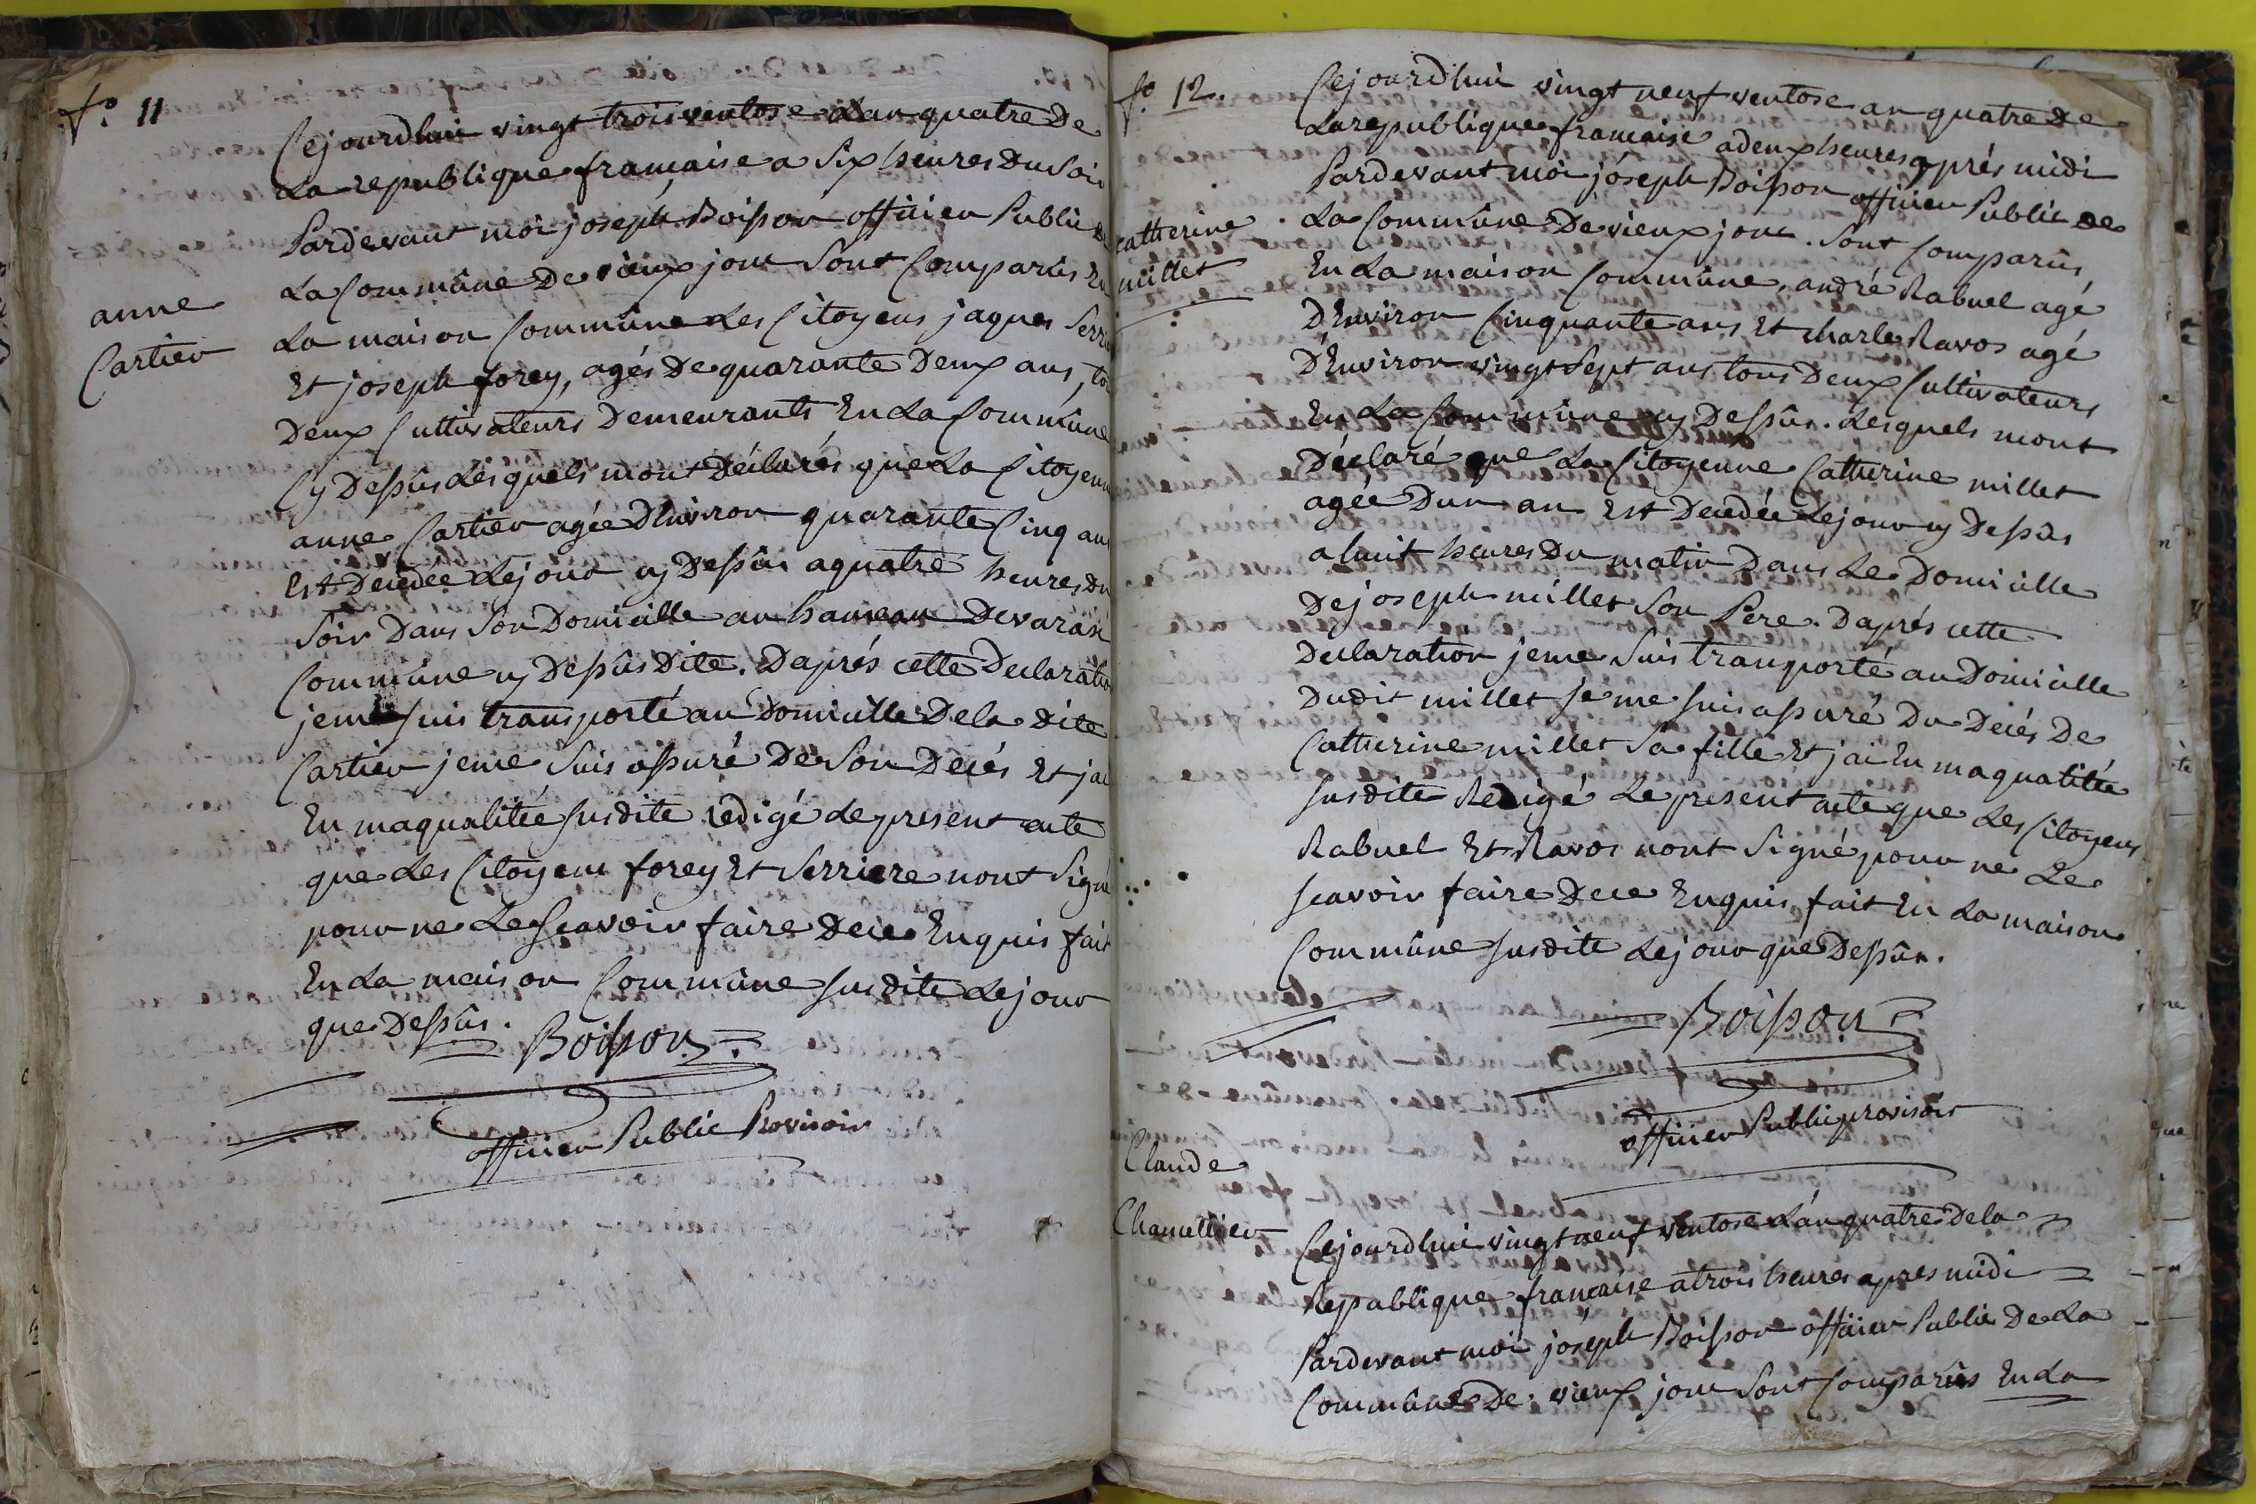 f.° 11
Cejourdhui vingt trois ventose Lan quatre De
La republique francaise a Six heures Du Soir
Pardevant moi joseph Boisson officier Public de
La Commûne De vieux jouc Sont Comparûs En
La maison Commûne Les Citoyens jaques Serriere
Et joseph forey, agés De quarante Deux ans, tous
Deux Cultivateurs Demeurants En La Commûne
Cy Dessûs Lesquels mont Déclarés que La Citoyenne
anne Cartier agée D'Environ quarante Cinq ans
Est Decedée Le jour cy Dessûs a quatre heures Du
Soir Dans Son Domicille au hameau De
Commûne cy Dessûs Dite. Daprés cette Declaration
je me Suis transporté au Domicille De la Dite
Cartier je me Suis assuré De Son Decés Et jai
En ma qualitée Susdite redigé Le present acte
que Les Citoyens forey Et Serriere nont Signé
pour ne Le Scavoir faire De ce Enquis fait
En La maison Commûne Susdite Le jour
que Dessûs.
Boisson
officier Public Provisoir
anne
Cartier
f.° 12.
Cejourdhui vingt neuf ventose an quatre De
La republique francaise a deux heures aprés midi
Pardevant moi jóseph Boisson officier Public De
La Commûne De vieux jouc. Sont Comparûs
En La maison Commûne, andré Rabuel agé
D'Environ Cinquante ans Et Charle Ravos agé
D'Environ vingt Sept ans tous Deux Cultivateurs
En La Commûne cy Dessûs. Lesquels mont
Déclaré que La Citoyenne Catherine millet
agée Dun an Est Decedée Le jour cy Dessûs
a huit heures Du matin Dans Le Domicille
De joseph millet Son Pere. Daprés cette
Declaration je me Suis transporté au Domicille
Dudit millet je me Suis assuré Du Decés De
Catherine millet Sa fille Et jai En ma qualitée
Susdite Redigé Le present acte que Les Citoyens
Rabuel Et Ravos nont Signé pour ne Le
Scavoir faire De ce Enquis, fait En La maison
Commûne Susdite Le jour que Dessûs.
Boisson
officier Public provisoir
catherine
millet
Claude
Chamettier
Cejourdhui vingt neuf Ventose L'an quatre De la
Republique francaise a trois heures apres midi
Pardevant moi jóseph Boisson officier Public De La
Commûne De vieux jouc Sont Comparûs En La